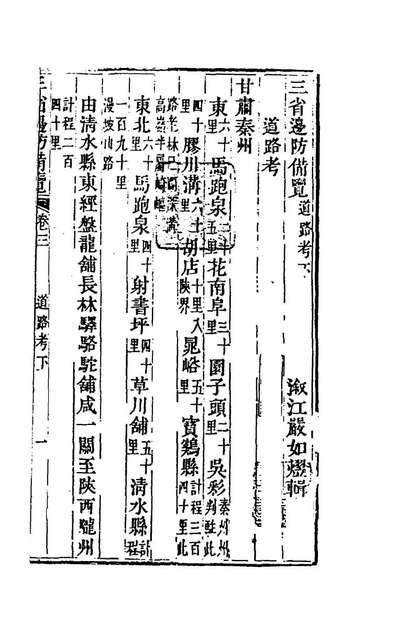 三省邊防備覽 道路考下
溆江嚴如熤輯
道路考
甘肅秦州
東六十里馬跑泉二十五里花南阜三十里園子頭二十里吳彩秦州州判駐此
四十里膠川溝六十里胡店十里入陝界晁峪五十里寶鷄縣計程三百四十里此
路老林
高
東北六十里馬跑泉四十里射書坪四十里草川舖五十里清水縣計程
一百九十里漫坡山路
由清水縣東經盤龍舖長林驛駱駝舖咸一關至陝西隴州
計程二百四十里
三省邊防備覽 卷三 道路考下 一